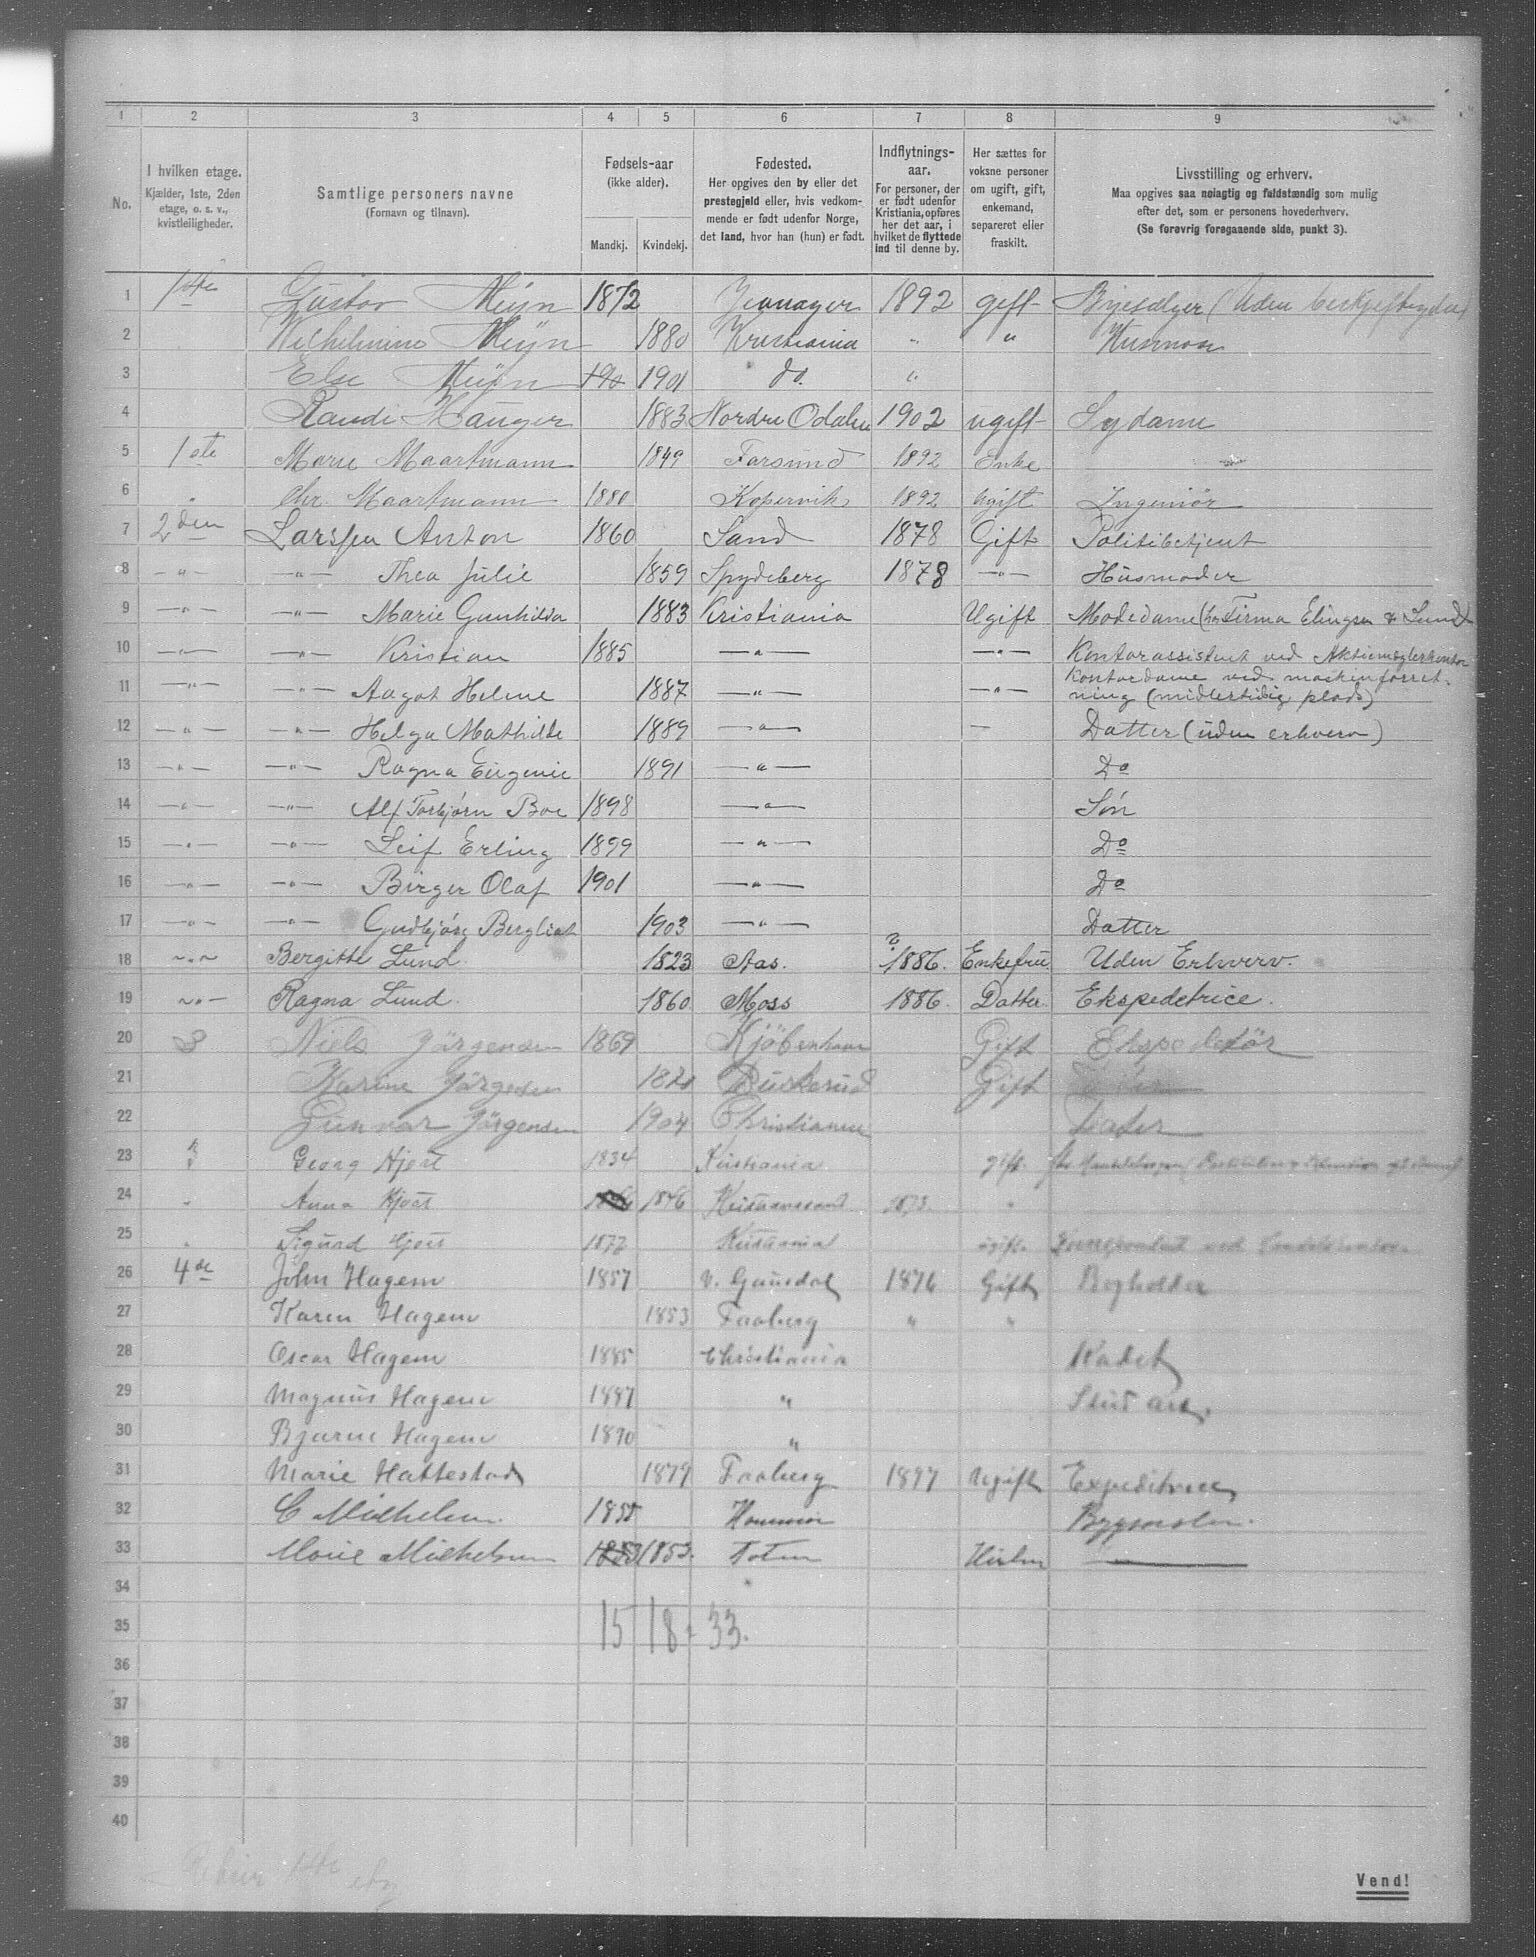 1 2 3 4 5 6 7 8 9
No.
I hvilken etage.
Kjælder, 1ste, 2den
etage, o. s. v.,
kvistleiligheder.
Samtlige personers navne
(Fornavn og tilnavn).
Fødsels-aar
(ikke alder).
Mandkj. Kvindekj.
Fødested.
Her opgives den by eller det
prestegjeld eller, hvis vedkom-
mende er født udenfor Norge,
det land, hvor han (hun) er født.
Indflytnings-
aar.
For personer, der
er født udenfor
Kristiania, opføres
her det aar, i
hvilket de flyttede
ind til denne by.
Her sættes for
voksne personer
om ugift, gift,
enkemand,
separeret eller
fraskilt.
Livsstilling og erhverv.
Maa opgives saa nøiagtig og fuldstændig som mulig
efter det, som er personens hovederhverv.
(Se forøvrig foregaaende side, punkt 3).
1 1ste Gustav Meyn 1872 1892 gift (Uden
2 Meyn 1880 Kristiania " "
3 Else Meyn 1901 do. "
4 Randi Hauger 1883 Nordre Odalen 1902 ugift Sydame
5 1ste Marie Maartmann 1849 Farsund 1892 Enke
6 " Chr. Maartmann 1880 Kopervik 1892 Ugift Ingeniør
7 2den Larssen Anton 1860 Sand 1878 Gift Politibetjent
8 -"- -"- Thea Julie 1859 Spydeberg 1878 -"- Husmoder
9 -"- -"- Marie Gunhilda 1883 Kristiania Ugift Modedame (hos Firma Elingsen & Lund
10 -"- -"- Kristian 1885 -"- -"- Kontorassistent ved Aktiemæglerkontor
11 -"- -"- Aagot Helene 1887 -"- -"- Kontordame ved maskinforret-
ning (midlertidig plads)
12 -"- -"- Helga Mathilde 1889 -"- - Datter (uden erhverv)
13 -"- -"- Ragna Eugenie 1891 -"- Do
14 -"- -"- Alf Torbjørn Boe 1898 -"- Søn
15 -"- -"- Leif Erling 1899 -"- Do
16 -"- -"- Birger Olaf 1901 -"- Do
17 -"- -"- Gudbjørg Bergliot 1903 -"- Datter
18 -"- Bergitte Lund. 1823 Aas. ? 1886. Enkefru Uden Erhverv.
19 -"- Ragna Lund. 1860 Moss 1886. Datter. Ekspedetrice.
20 3 Niels Jörgensen 1869 Kjöbenhavn Gift Ekspeditör
21 Karine Jörgensen Buskerud Gift
22 Gunvar Jörgensen 1904 Christiania
23 3 Georg Hjort 1834 Kristiania gift.
24 " Anna Hjort 1846 Kristianssand "
25 " Sigurd Hjort 1877 Kristiania ugift.
26 4de John Hagem 1857 V. Gausdal 1876 Gift Bogholder
27 Karen Hagem 1853 Faaberg " "
28 Oscar Hagem 1885 Christiania Kadet
29 Magnus Hagem 1887 " Stud art.
30 Bjarne Hagem 1890 "
31 Marie Hattestad 1879 Faaberg 1897 Ugift Expeditrice
32 C Mikkelsen. 1855
33 Marie Mikkelsen 1853 1853. Toten
34
35 15 18 = 33.
36
37
38
39
40
1ste
Vend!